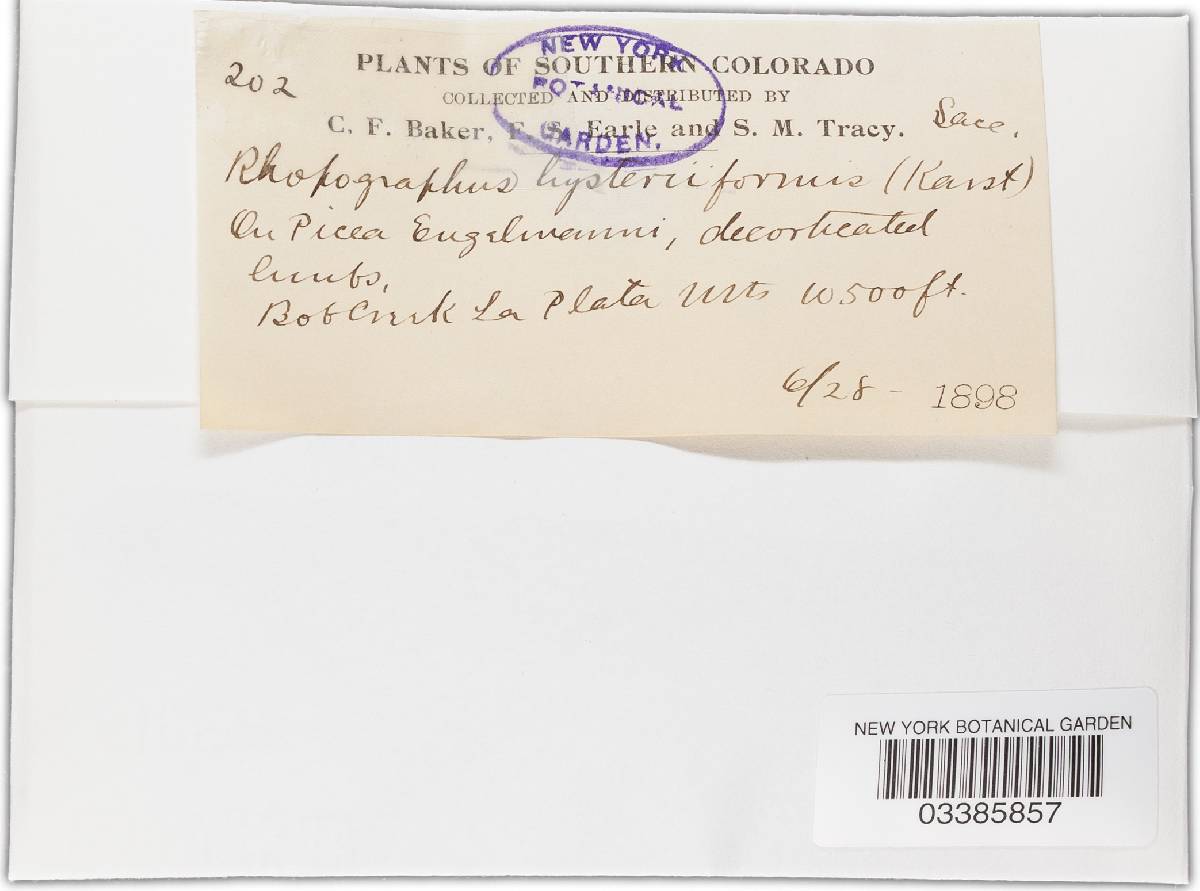 202
PLANTS OF SOUTHERN COLORADO
COLLECTED AND DISTRIBUTED BY
C. F. Baker, F. S. Earle and S. M. Tracy.
Sacc.
NEW YORK
BOTANICAL
GARDEN.
Rhopographus hysteriiformis (Karst)
On Picea Engelmanni, decorticated
limbs,
Bob Creek La Plata Mts 10500ft.
6/28 - 1898
NEW YORK BOTANICAL GARDEN
03385857